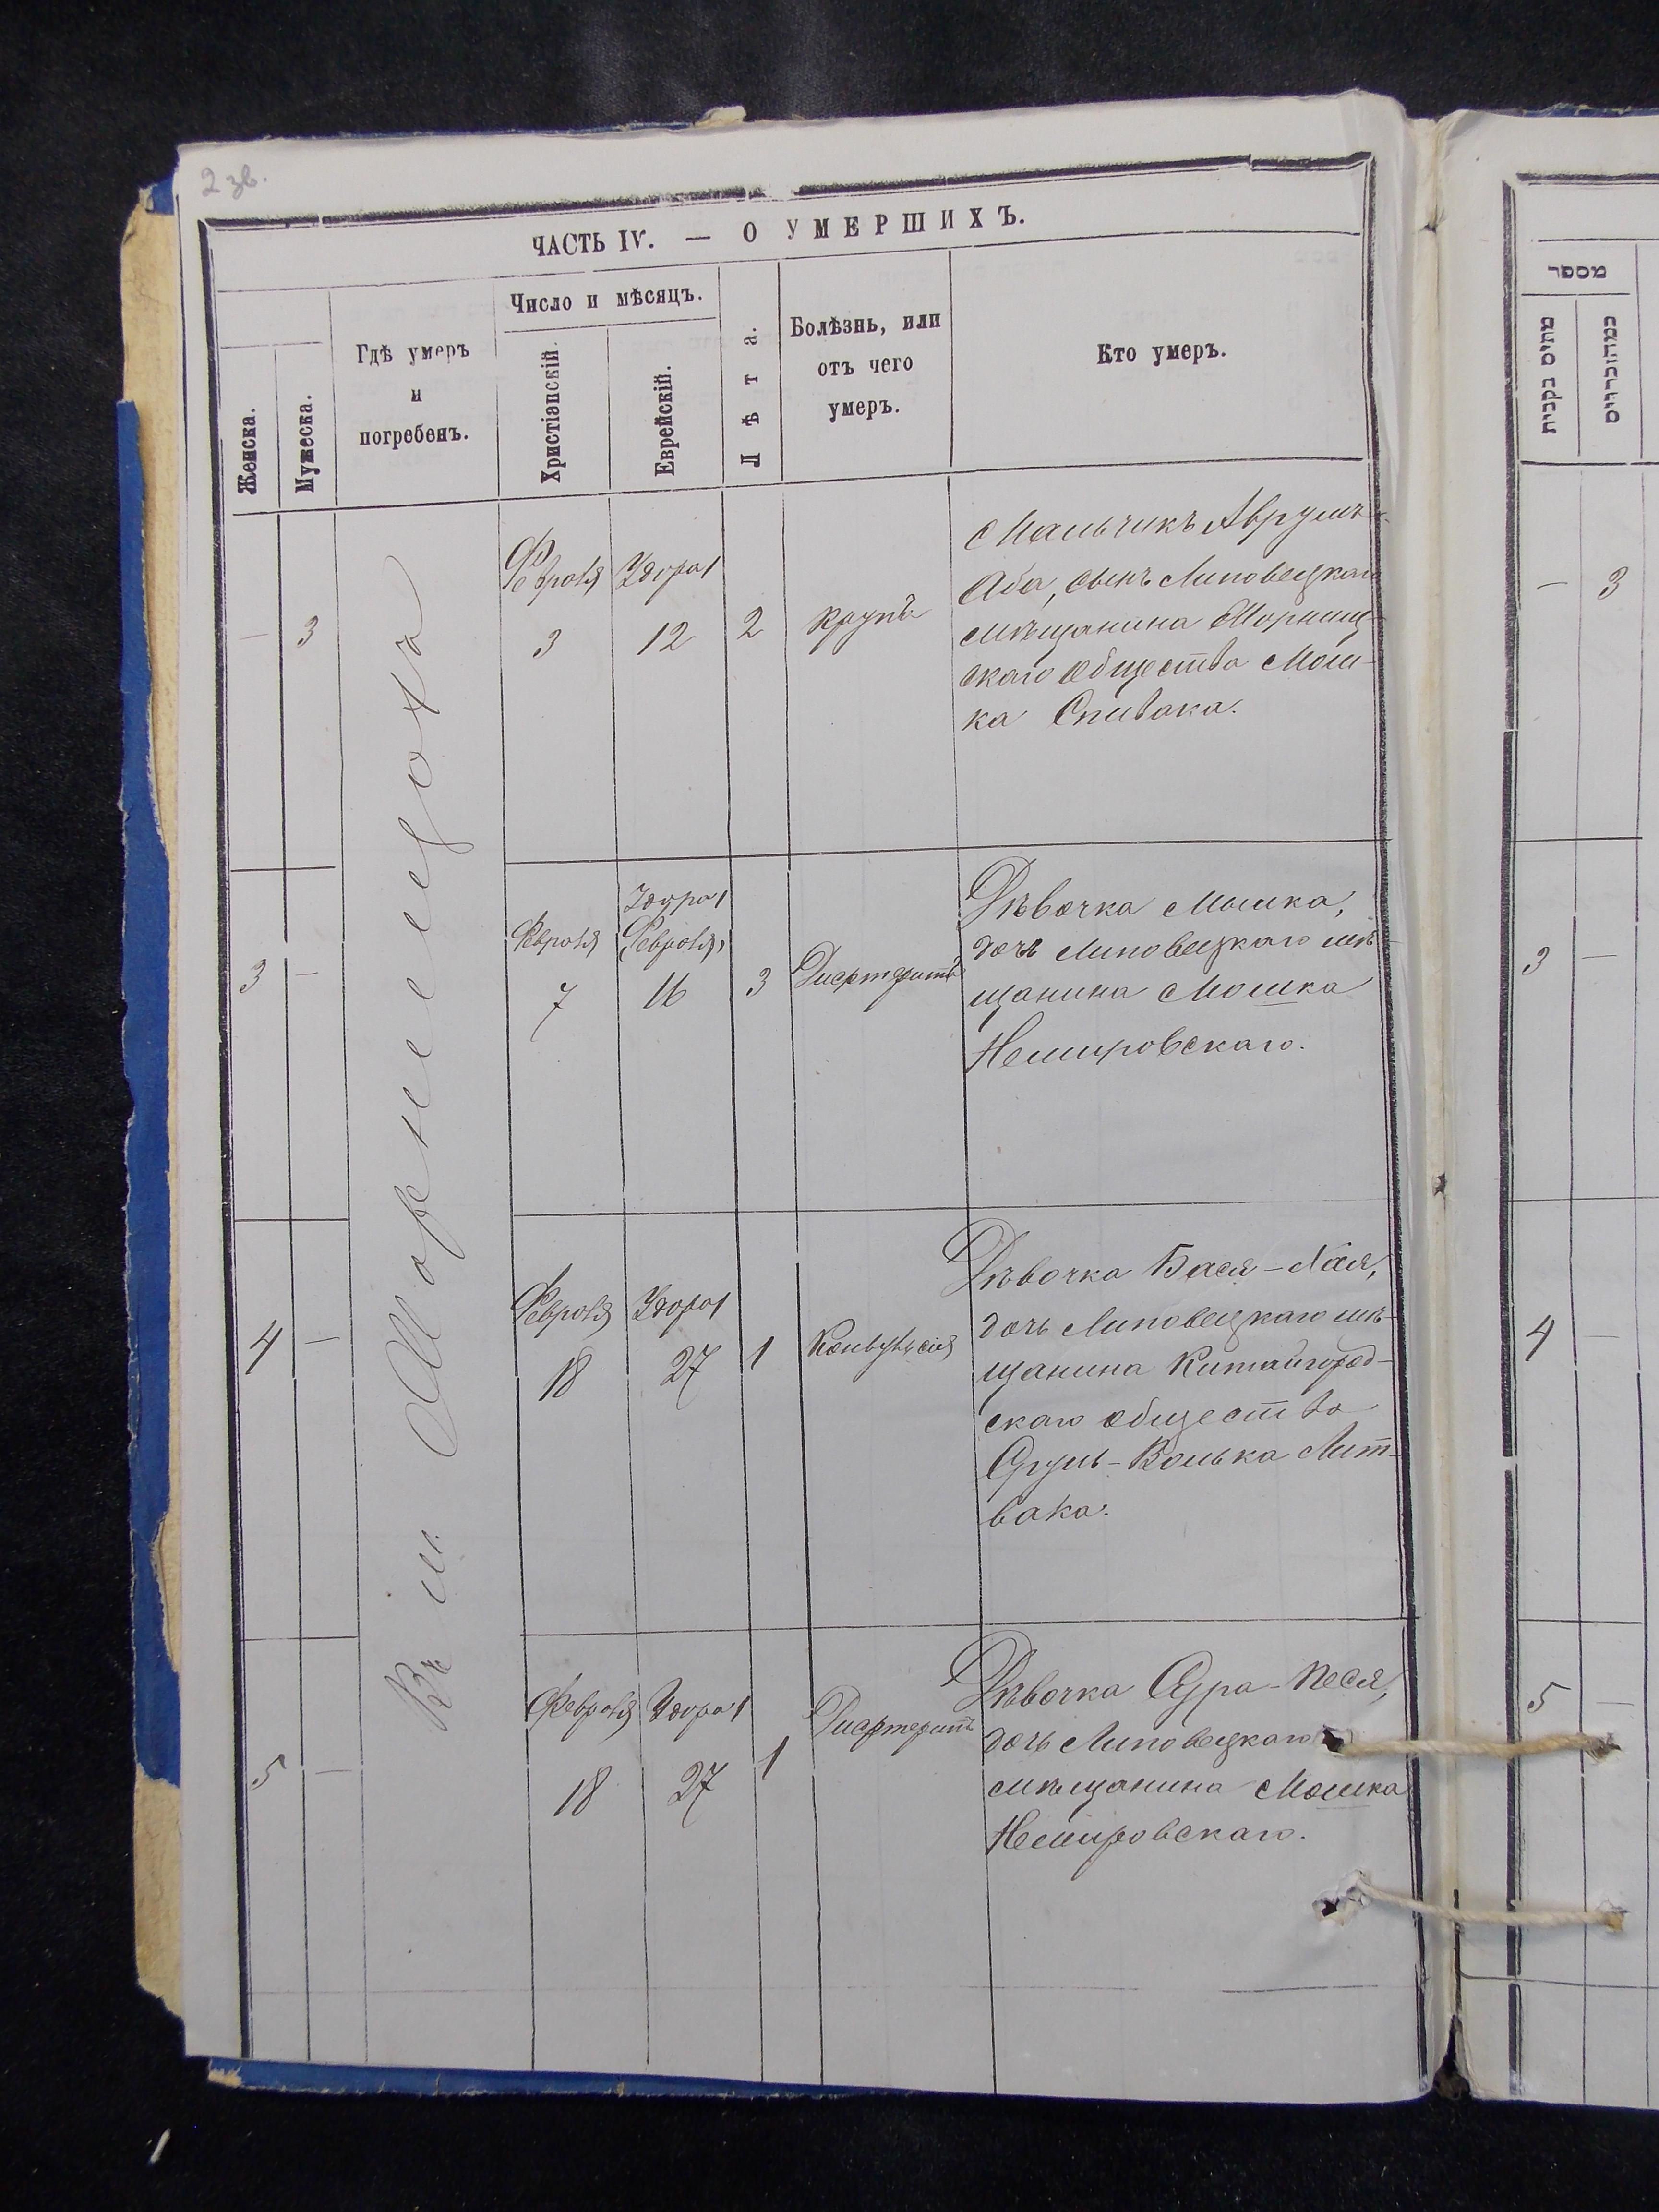 2 зв.
ЧАСТЬ IV. — О УМЕРШИХЪ.
Женска.
Мужеска.
Гдѣ умеръ
и
погребенъ.
Число и мѣсяцъ.
Христіанскій.
Еврейскій.
Лѣта.
Болѣзнь, или
отъ чего
умеръ.
Кто умеръ.
Въ м.
— 3
Февраля
3
Адора
12
2
Крупъ
Мальчикъ Аврумъ-
Аба, сынъ Липовецкаго
мѣщанина
скаго общества Мош-
ка Спивака.
3 —
Февраля
7
Адора
Февраля
16
3
Дифтеритъ
Дѣвочка
дочь Липовецкаго мѣ-
щанина Мошка
Немировскаго.
4 —
Февраля
18
Адора
27
1
Конвульсія
Дѣвочка Бася-Хая,
дочь Липовецкаго мѣ-
щанина Китайгород-
скаго общества
Сруль-Волька Лит-
вака.
5 —
Февраля
18
Адора
27
1
Дифтеритъ
Дѣвочка Сура-Песя,
дочь Липовецкаго
мѣщанина Мошка
Немировскаго.
מספר
מתים נקבות
— 3
3 —
4 —
5 —